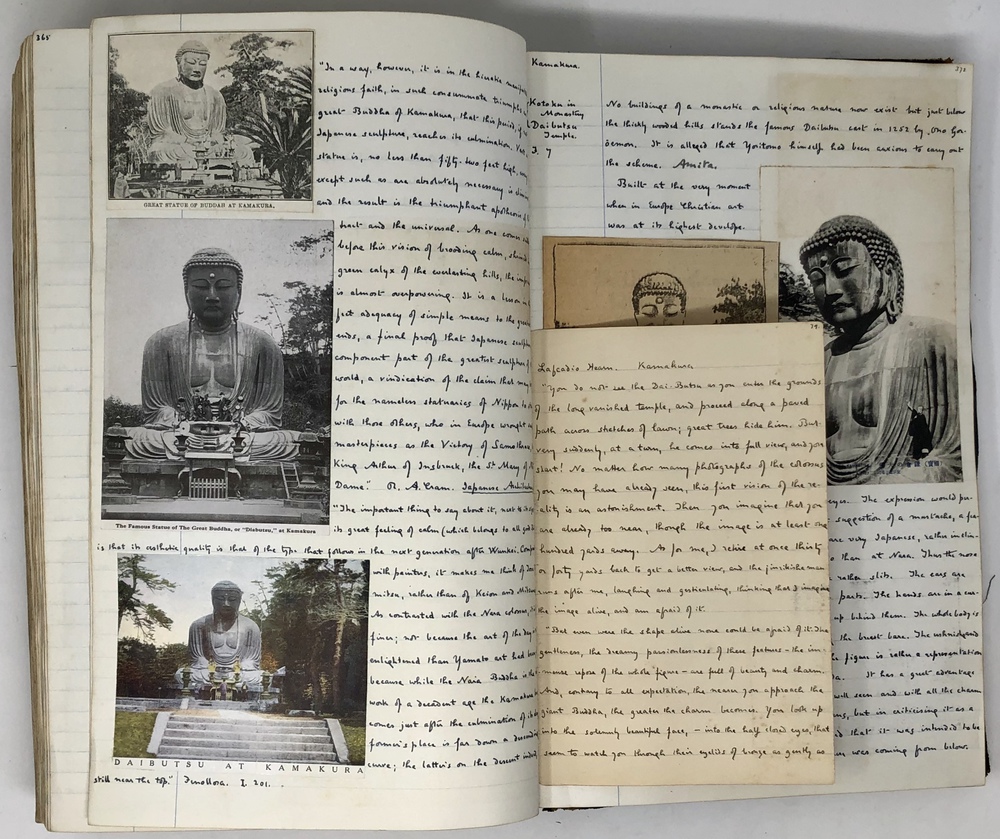 365
GREAT STATUE OF BUDDAH AT KAMAKURA.
The Famous Statue of The Great Buddha, or "Diabutsu," at Kamakura
DAIBUTSU AT KAMAKURA
"In a way, however, it is in the hieratic
religious faith, in such consummate triumph,
great Buddha of Kamakura, that this period, if
Japanese sculpture, reaches its culmination.
statue is, no less than fifty-two feet high,
except such as are absolutely necessary is
and the result is the triumphant apotheosis
tract and the universal. As one comes
before this vision of brooding calm,
green calyx of the everlasting hills, the
is almost overpowering. It is a lesson
fect adequacy of simple means to the
ends, a final proof that Japanese
component part of the greatest sculpture
world, a vindication of the claim that
for the nameless statuaries of Nippon to
with those others, who in Europe wrought
masterpieces as the Victory of
King Arthur of Insbruck, the St Mary of
Dame." R. A. Cram. Japanese
"The important thing to say about it, next to
its great feeling of calm (which belongs to all
is that its esthetic quality is that of the type that follows in the next generation after Wunkei.
with painters, it makes me think of
mitsu, rather than of Keion and
As contrasted with the Nara colossus,
finer; not because the art of the day
enlightened than Yamato art had been
because while the Nara Buddha is the
work of a decadent age the Kamakura
comes just after the culmination of its
former's place is far down a descending
curve; the latter's on the descent indeed,
still near the top." Fenollosa. I. 201.
Kamakura.
373
Kotoku in
Monastery
Daibutsu
Temple.
J. 7
No buildings of a monastic or religious nature now exist but just below
the thickly wooded hills stands the famous Daibutsu cast in 1252 by Ono Go-
remon. It is alleged that Yoritomo himself had been anxious to carry out
the scheme. Amita.
Built at the very moment
when in Europe Christian art
was at its highest develope.
39.
Lafcadio Hearn. Kamakura
"You do not see the Dai-Butsu as you enter the grounds
of the long vanished temple, and proceed along a paved
path across stretches of lawn; great trees hide him. But
very suddenly, at a turn, he comes into full view, and you
start! No matter how many photographs of the colossus
you may have already seen, this first vision of the re-
ality is an astonishment. Then you imagine that you
are already too near, though the image is at least one
hundred yards away. As for me, I retire at once thirty
or forty yards back to get a better view, and the jinrikisha man
runs after me, laughing and gesticulating, thinking that I imagine
the image alive, and am afraid of it.
"But even were the shape alive none could be afraid of it. The
gentleness, the dreamy passionlessness of these features – the im-
mense repose of the whole figure – are full of beauty and charm.
And, contrary to all expectation, the nearer you approach the
giant Buddha, the greater the charm becomes. You look up
into the solemnly beautiful face, – into the half closed eyes, that
seem to watch you through their eyelids of bronze as gently as
eyes. The expression would
suggestion of a mustache, a
are very Japanese, rather
than at Nara. Thus the nose
rather slits. The ears are
parts. The hands are in a
up behind them. The whole body is
the breast bare. The
figure is rather a representation
It has a great advantage
well seen and with all the charm
but in criticising it as a
that it was intended to be
was coming from below.